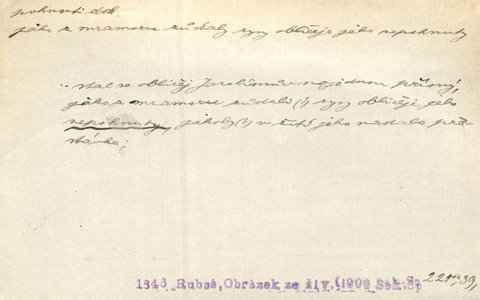 pohnouti dok.
jako z mramoru zůstaly rysy obličeje jeho nepohnuty
.. stal se obličej Jarolímův najednou přísný,
jako z mramoru zůstali (!) rysy obličeje jeho
nepohnuty, jakoby (!) v žití jeho nastala pře-
stávka;
1843 Rubeš, Obrázek ze živ. (1906
229,39,